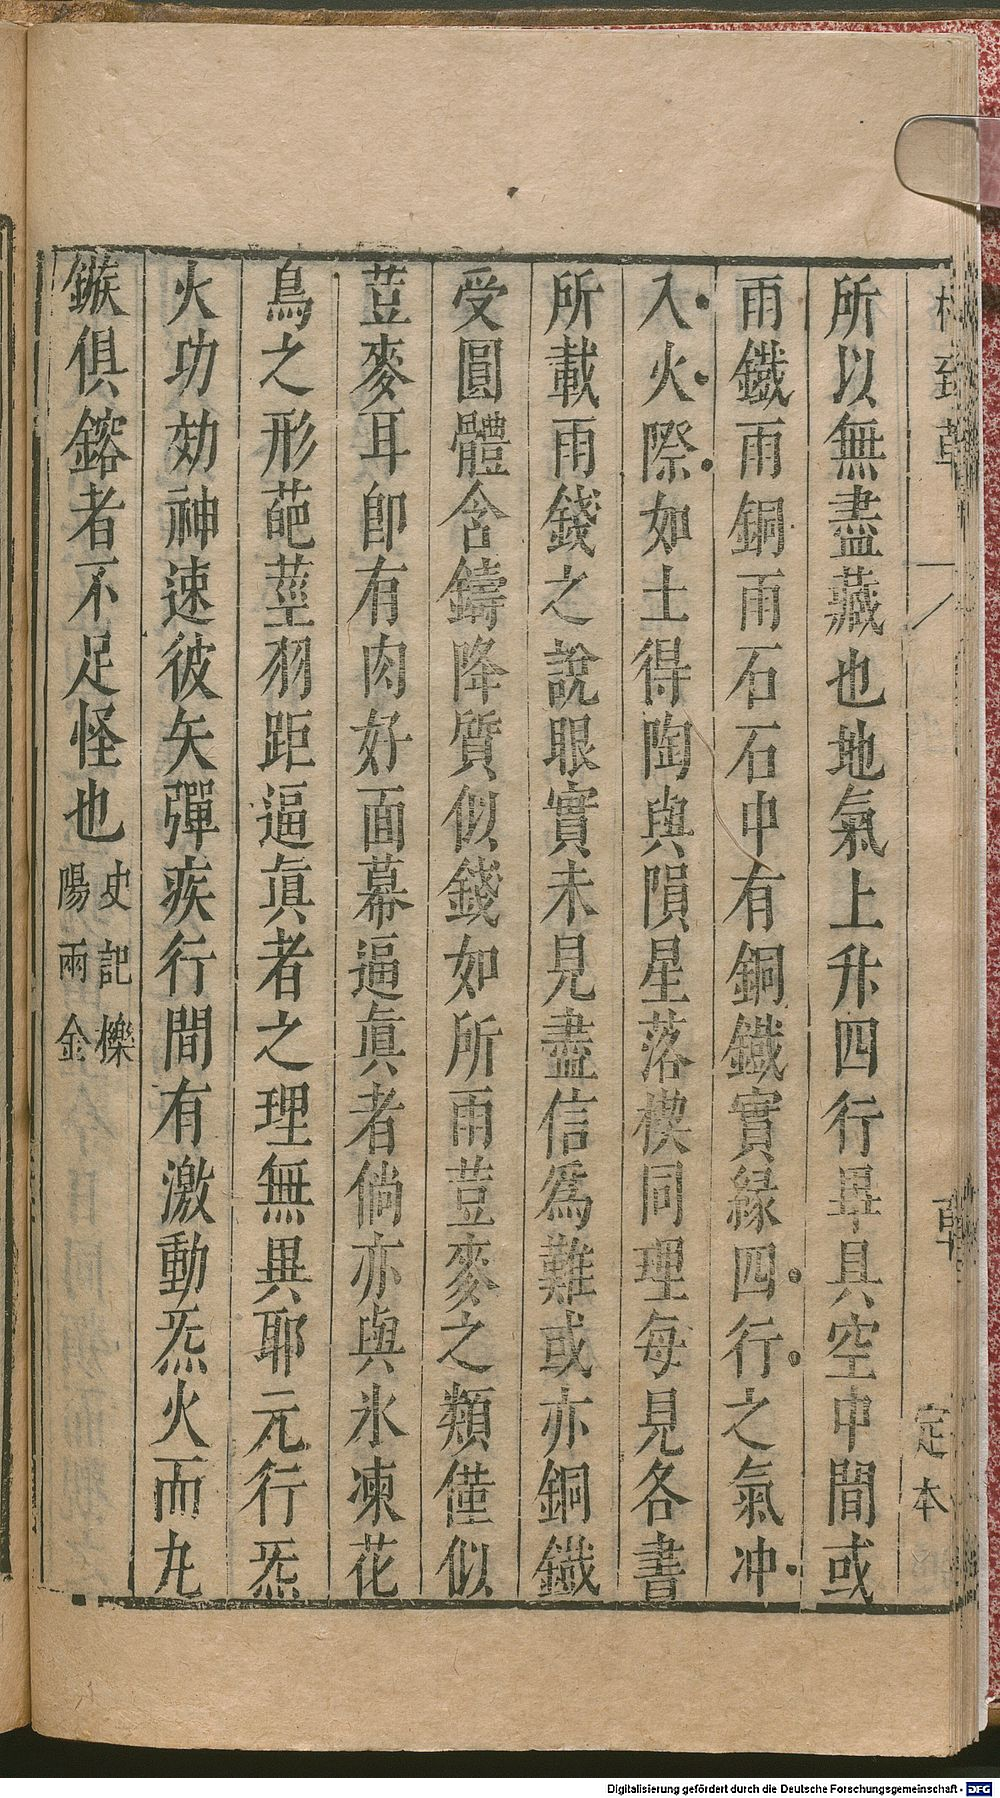 格致草
草
定本
所以無盡藏也地氣上升四行畢具空中間或
雨鐵雨銅雨石石中有銅鐵實緣四行之氣冲
入火際如土得陶與隕星落楔同理每見各書
所載雨錢之說眼實未見盡信爲難或亦銅鐵
受圓體含鑄降質似錢如所雨荳麥之類僅似
荳麥耳卽有肉好面幕逼眞者倘亦與氷凍花
鳥之形葩莖羽距逼眞者之理無異耶元行炁
火功効神速彼矢彈疾行間有激動炁火而九
鏃俱鎔者不足怪也史記櫟
陽雨金
Digitalisierung gefördert durch die Deutsche Forschungsgemeinschaft - DFG